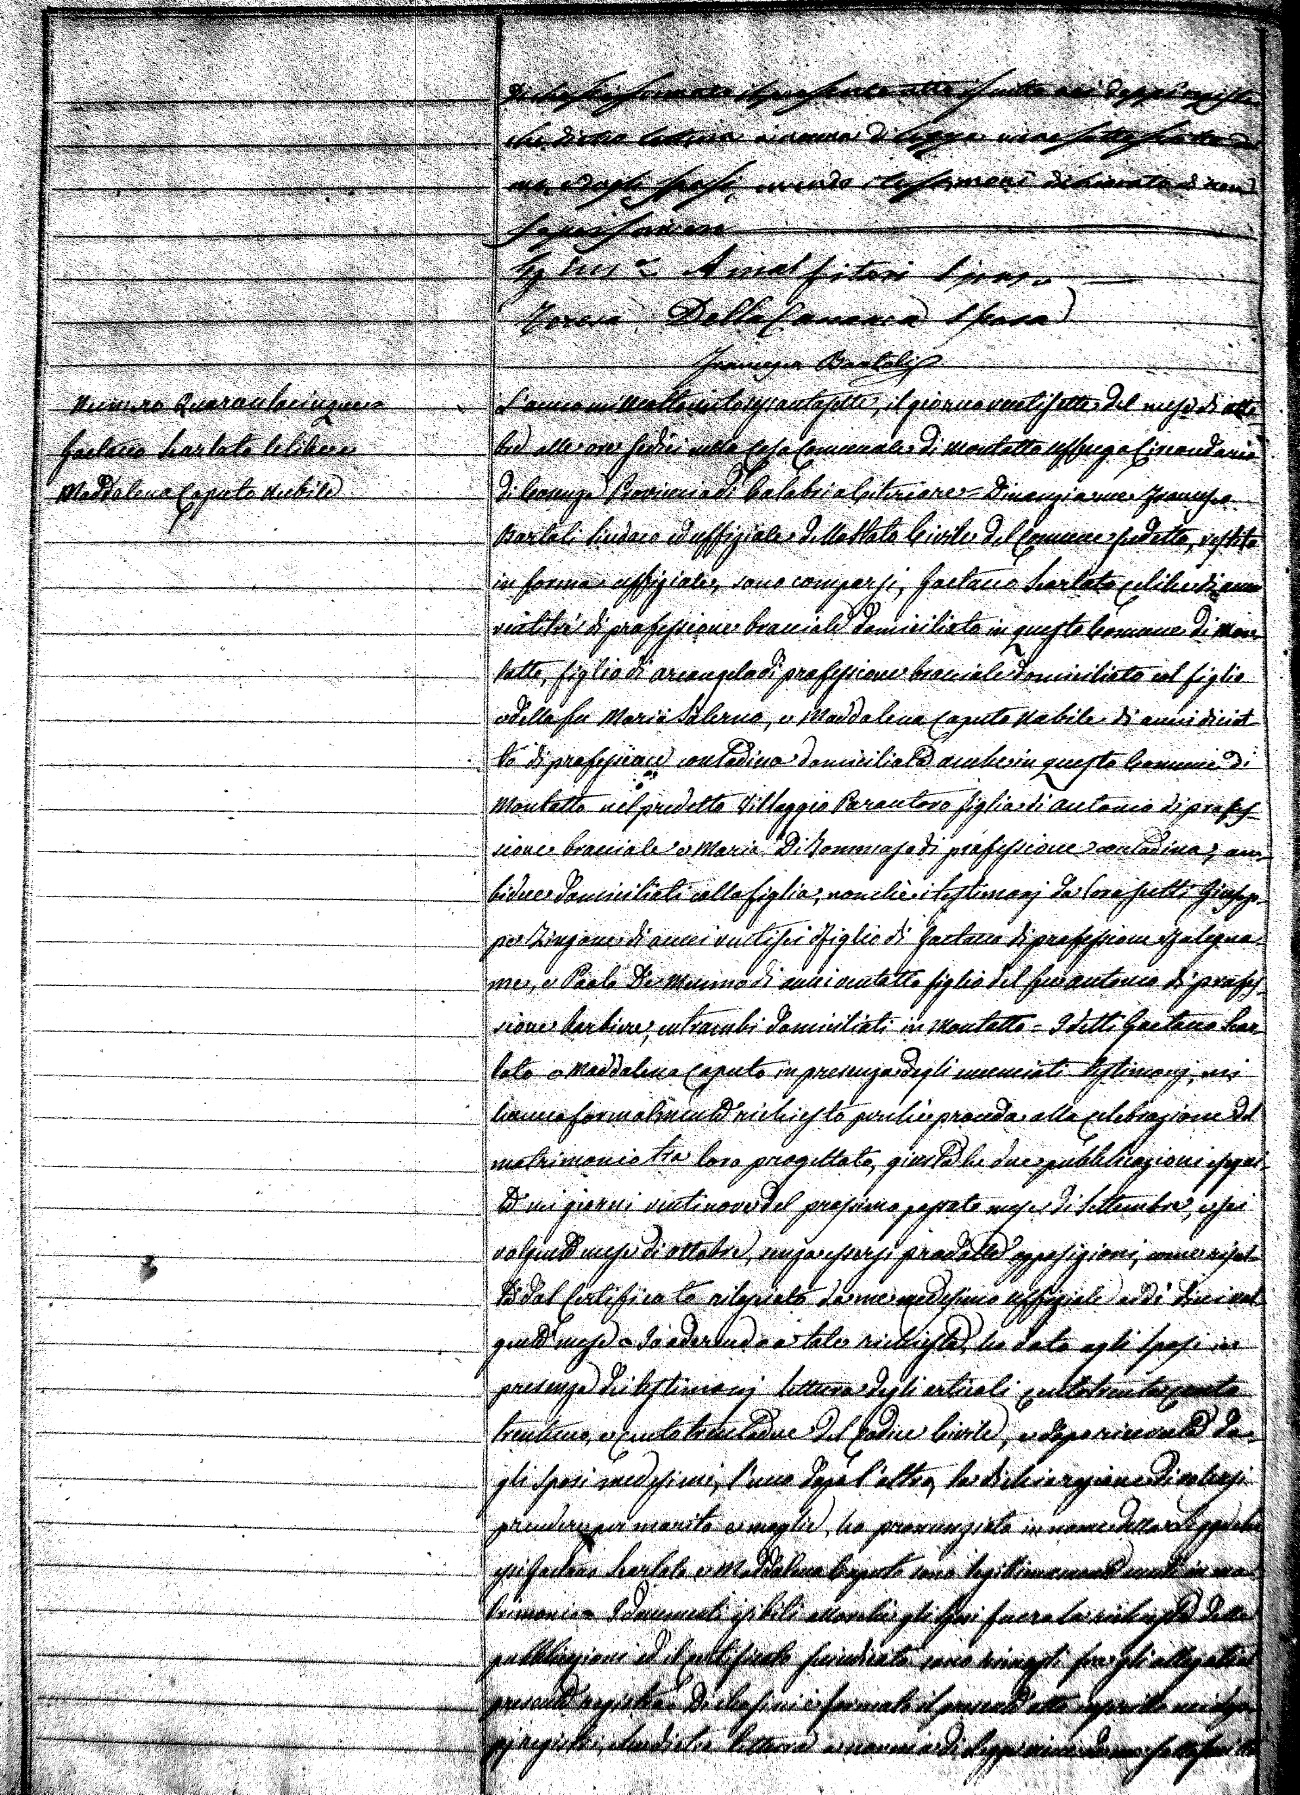 Di che si è formato il presente atto iscritto nei doppi registri
che dietro lettura a norma di legge viene sottoscritto da
me e dagli sposi, avendo i testimoni dichiarato di non
saper firmare
Amalfitani Sposo
Teresa Della Canonea Sposa
Francesco Bartoli
Numero Quarantacinque
Gaetano Scarlato celibe e
Maddalena Caputo nubile
L'anno milleottocentosessantasette, il giorno ventisette del mese di otto
bre alle ore sedici nella Casa Comunale di Montalto Uffugo Circondario
di Cosenza Provincia di Calabria Citeriore = Dinanzi a me Francesco
Bartoli Sindaco ed uffiziale dello Stato Civile del Comune sudetto, vestito
in forma uffiziale, sono comparsi, Gaetano Scarlato celibe di anni
ventitrè di professione bracciale domiciliato in questo Comune di Mon-
talto, figlio di Arcangelo di professione bracciale domiciliato col figlio
e della fu Maria Salerno, e Maddalena Caputo nubile di anni diciot
to di professione contadina domiciliata anche in questo Comune di
Montalto nel predetto Villaggio Parantoro figlia di Antonio di profes-
sione bracciale e Maria Di Tommaso di professione contadina, am-
bidue domiciliati colla figlia, nonchè i testimonj da loro scelti Giusep-
pe Zingone di anni ventisei figlio di Gaetano di professione falegna-
me, e Paolo De Munno di anni ventotto figlio del fu Antonio di profes-
sione barbiere, entrambi domiciliati in Montalto = I detti Gaetano Scar-
lato e Maddalena Caputo in presenza degli enunciati testimonj, mi
hanno formalmente richiesto perchè proceda alla celebrazione del
matrimonio tra loro progettato, giusta le due pubblicazioni esegui-
te nei giorni ventinove del prossimo passato mese di Settembre, e sei
volgente mese di ottobre, senza essersi prodotte opposizioni, come risul-
ta dal Certificato rilasciato da me medesimo uffiziale addì dieci vol
gente mese = Io aderendo a tale richiesta, ho dato agli sposi in
presenza dei testimonj lettura degli articoli centotrenta cento
trentuno, e centotrentadue del Codice Civile, e dopo ricevuta da-
gli sposi medesimi, l'uno dopo l'altro, la dichiarazione di volersi
prendere per marito e moglie, ho pronunziato in nome della Legge che
essi Gaetano Scarlato e Maddalena Caputo sono legittimamente uniti in ma-
trimonio = I documenti esibiti allorchè gli sposi fecero la richiesta delle
pubblicazioni ed il certificato suindicato sono rimasti fra gli allegati al
presente registro = Di che si è formato il presente atto iscritto nei dop-
pj registri, che dietro lettura a norma di Legge viene da me sottoscritto